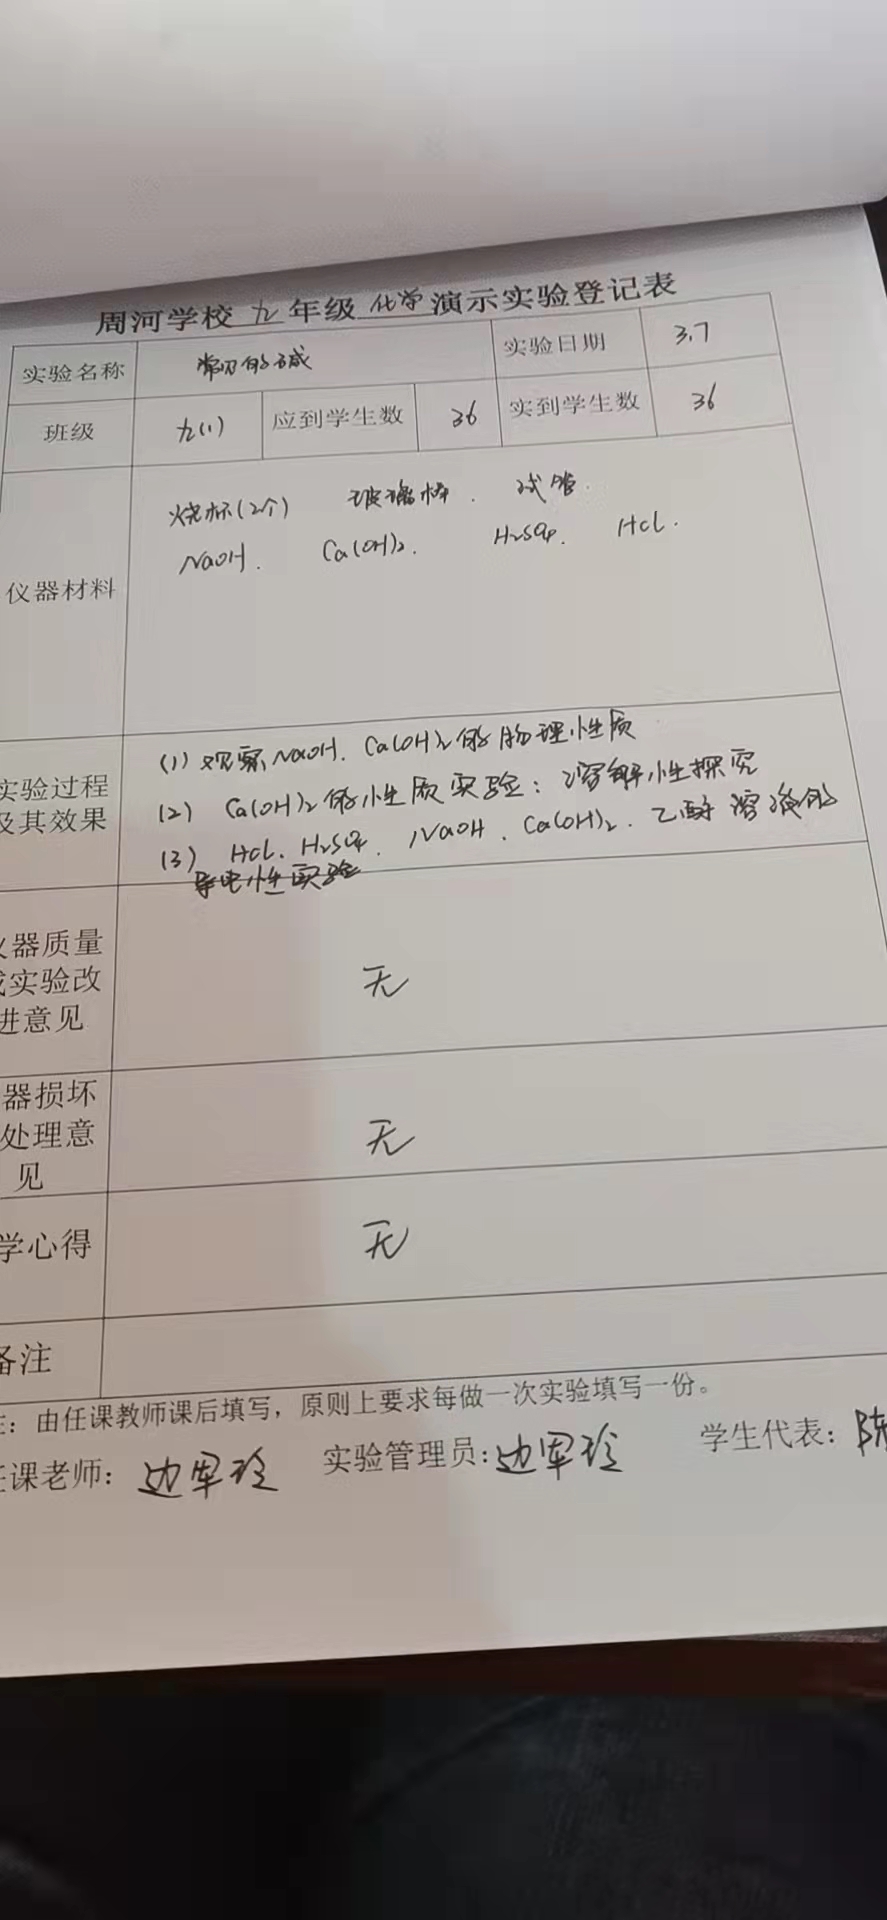 周河学校 九 年级 化学 演示实验登记表
实验名称 常见的碱 实验日期 3.7
班级 九(1) 应到学生数 36 实到学生数 36
仪器材料
烧杯(2个) 玻璃棒. 试管.
NaOH. Ca(OH)2. H2SO4. HCl.
实验过程
及其效果
(1) 观察NaOH、Ca(OH)2的物理性质
(2) Ca(OH)2的性质实验：溶解性探究
(3) HCl、H2SO4、NaOH、Ca(OH)2、乙醇溶液的
导电性实验
器质量
实验改
进意见
无
器损坏
处理意
见
无
学心得
无
备注
：由任课教师课后填写，原则上要求每做一次实验填写一份。
任课老师：边军玲 实验管理员：边军玲 学生代表：陈